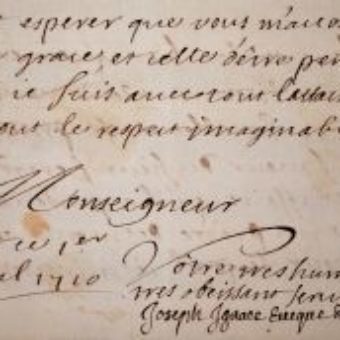 esperer que vous m'acco
grace et cette d'être per
ie suis avec tout l'attac
out le respect imaginab
Monseigneur
ce 1er
l 1710
Vôtre tres hum
tres obeissant servi
Joseph Ignace Eueque